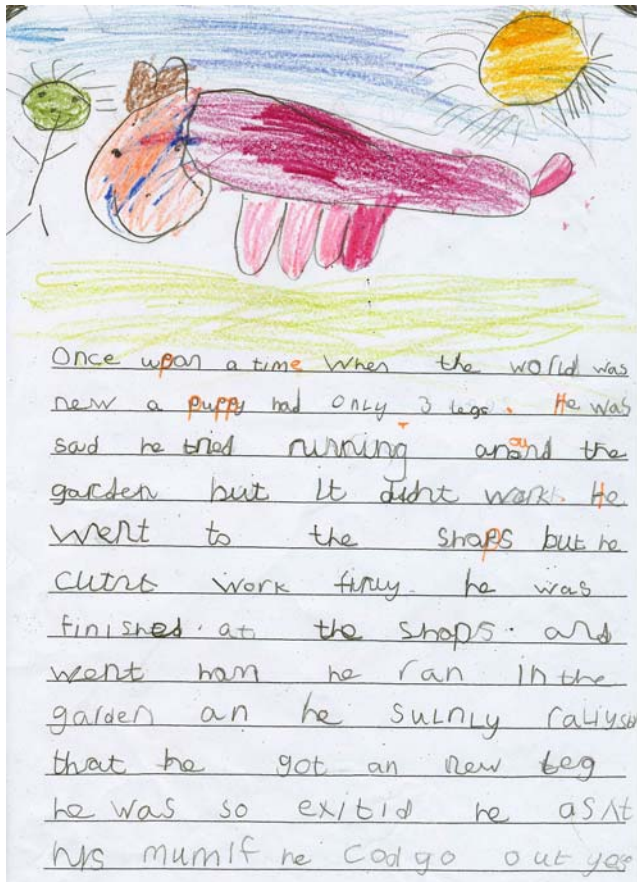 Once upon a time When the world was
new a puppy had only 3 legs. He was
sad he tried running around the
garden but it didnt work. He
went to the shops but he
cutnt work finuy. he was
finished. at the shops. and
went hom he ran in the
garden an he sulnly raliysd
that he got an new leg
he was so exitid he asht
his mum if he cod go out yes